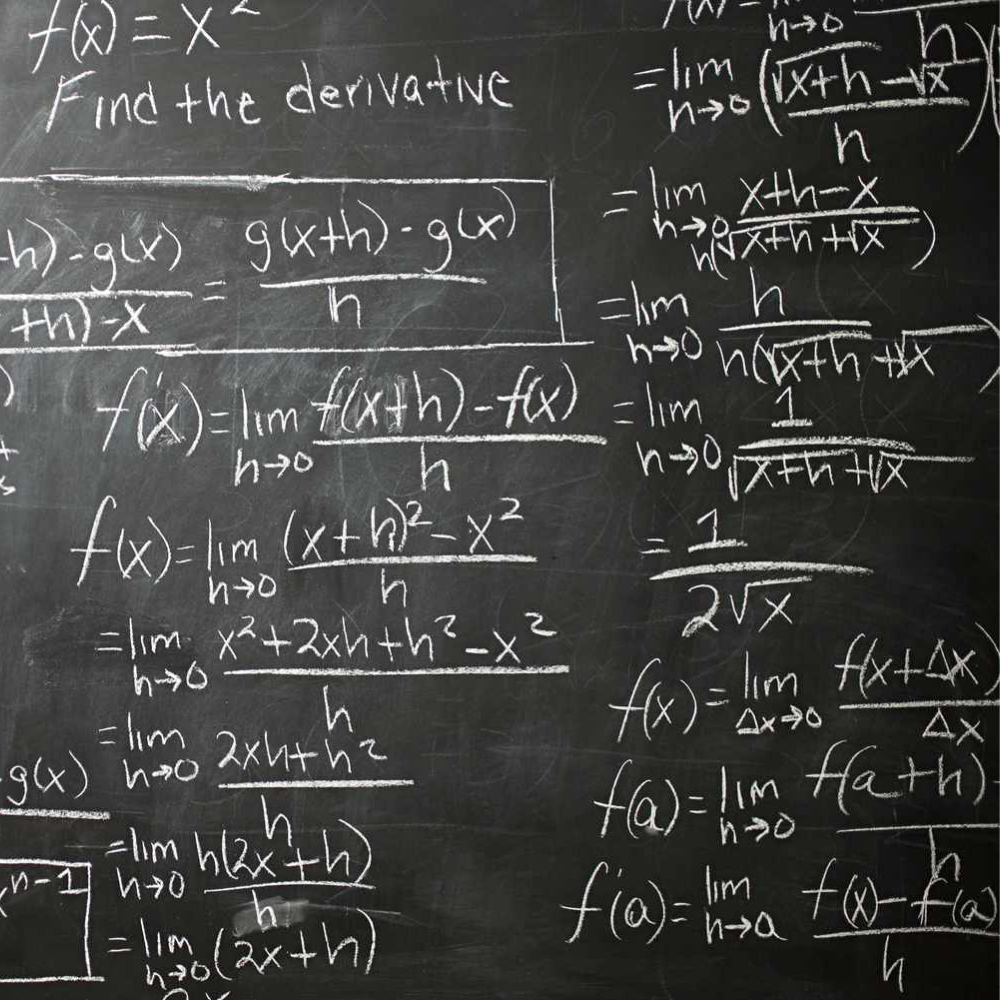 f(x) = x²
Find the derivative
h) - g(x) / +h) - x = g(x+h) - g(x) / h
f'(x) = lim h→0 f(x+h) - f(x) / h
f(x) = lim h→0 (x+h)² - x² / h
= lim h→0 x² + 2xh + h² - x² / h
= lim h→0 2xh + h² / h
g(x)
= lim h→0 h(2x+h) / h
n-1
= lim h→0 (2x+h)
h→0 h
= lim h→0 (√x+h - √x / h)(
= lim h→0 x+h-x / h(√x+h + √x)
= lim h→0 h / h(√x+h + √x)
= lim h→0 1 / √x+h + √x
= 1 / 2√x
f(x) = lim Δx→0 f(x+Δx) / Δx
f(a) = lim h→0 f(a+h) - / h
f'(a) = lim h→a f(x) - f(a) / h